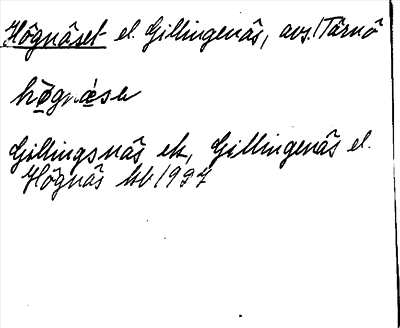 Högnäset el. Gillingenäs, avs. Tärnö
högnäse
Gillingsnäs ek, Gillingenäs el.
Högnäs kb 1937